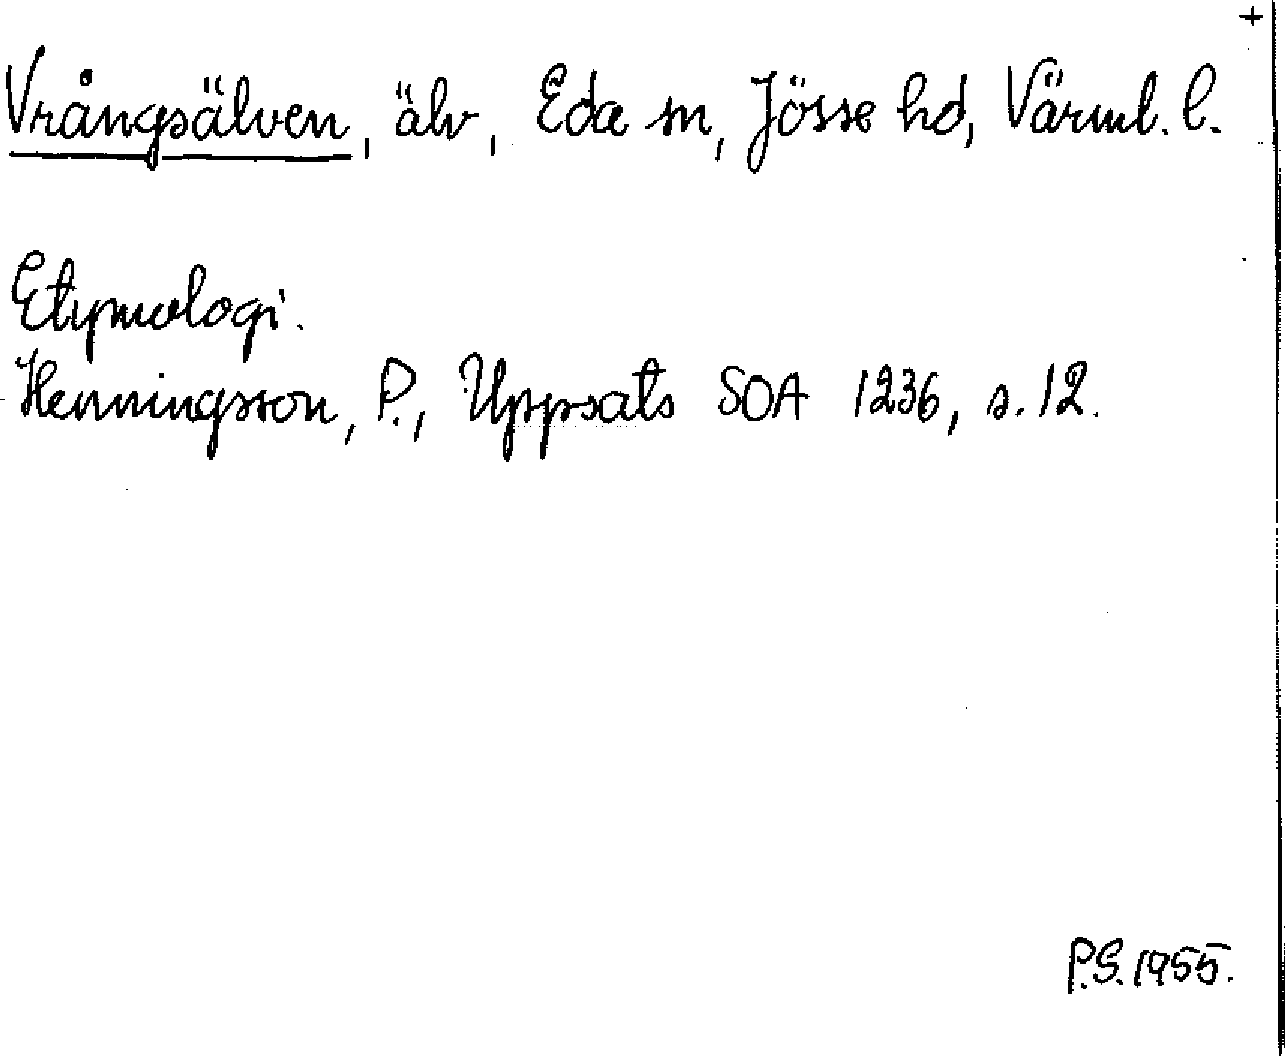 +
Vrångsälven, älv, Eda sn, Jösse hd, Värml. l.
Etymologi.
Henningsson, P., Uppsats SOA 1236, s. 12.
P.S. 1955.